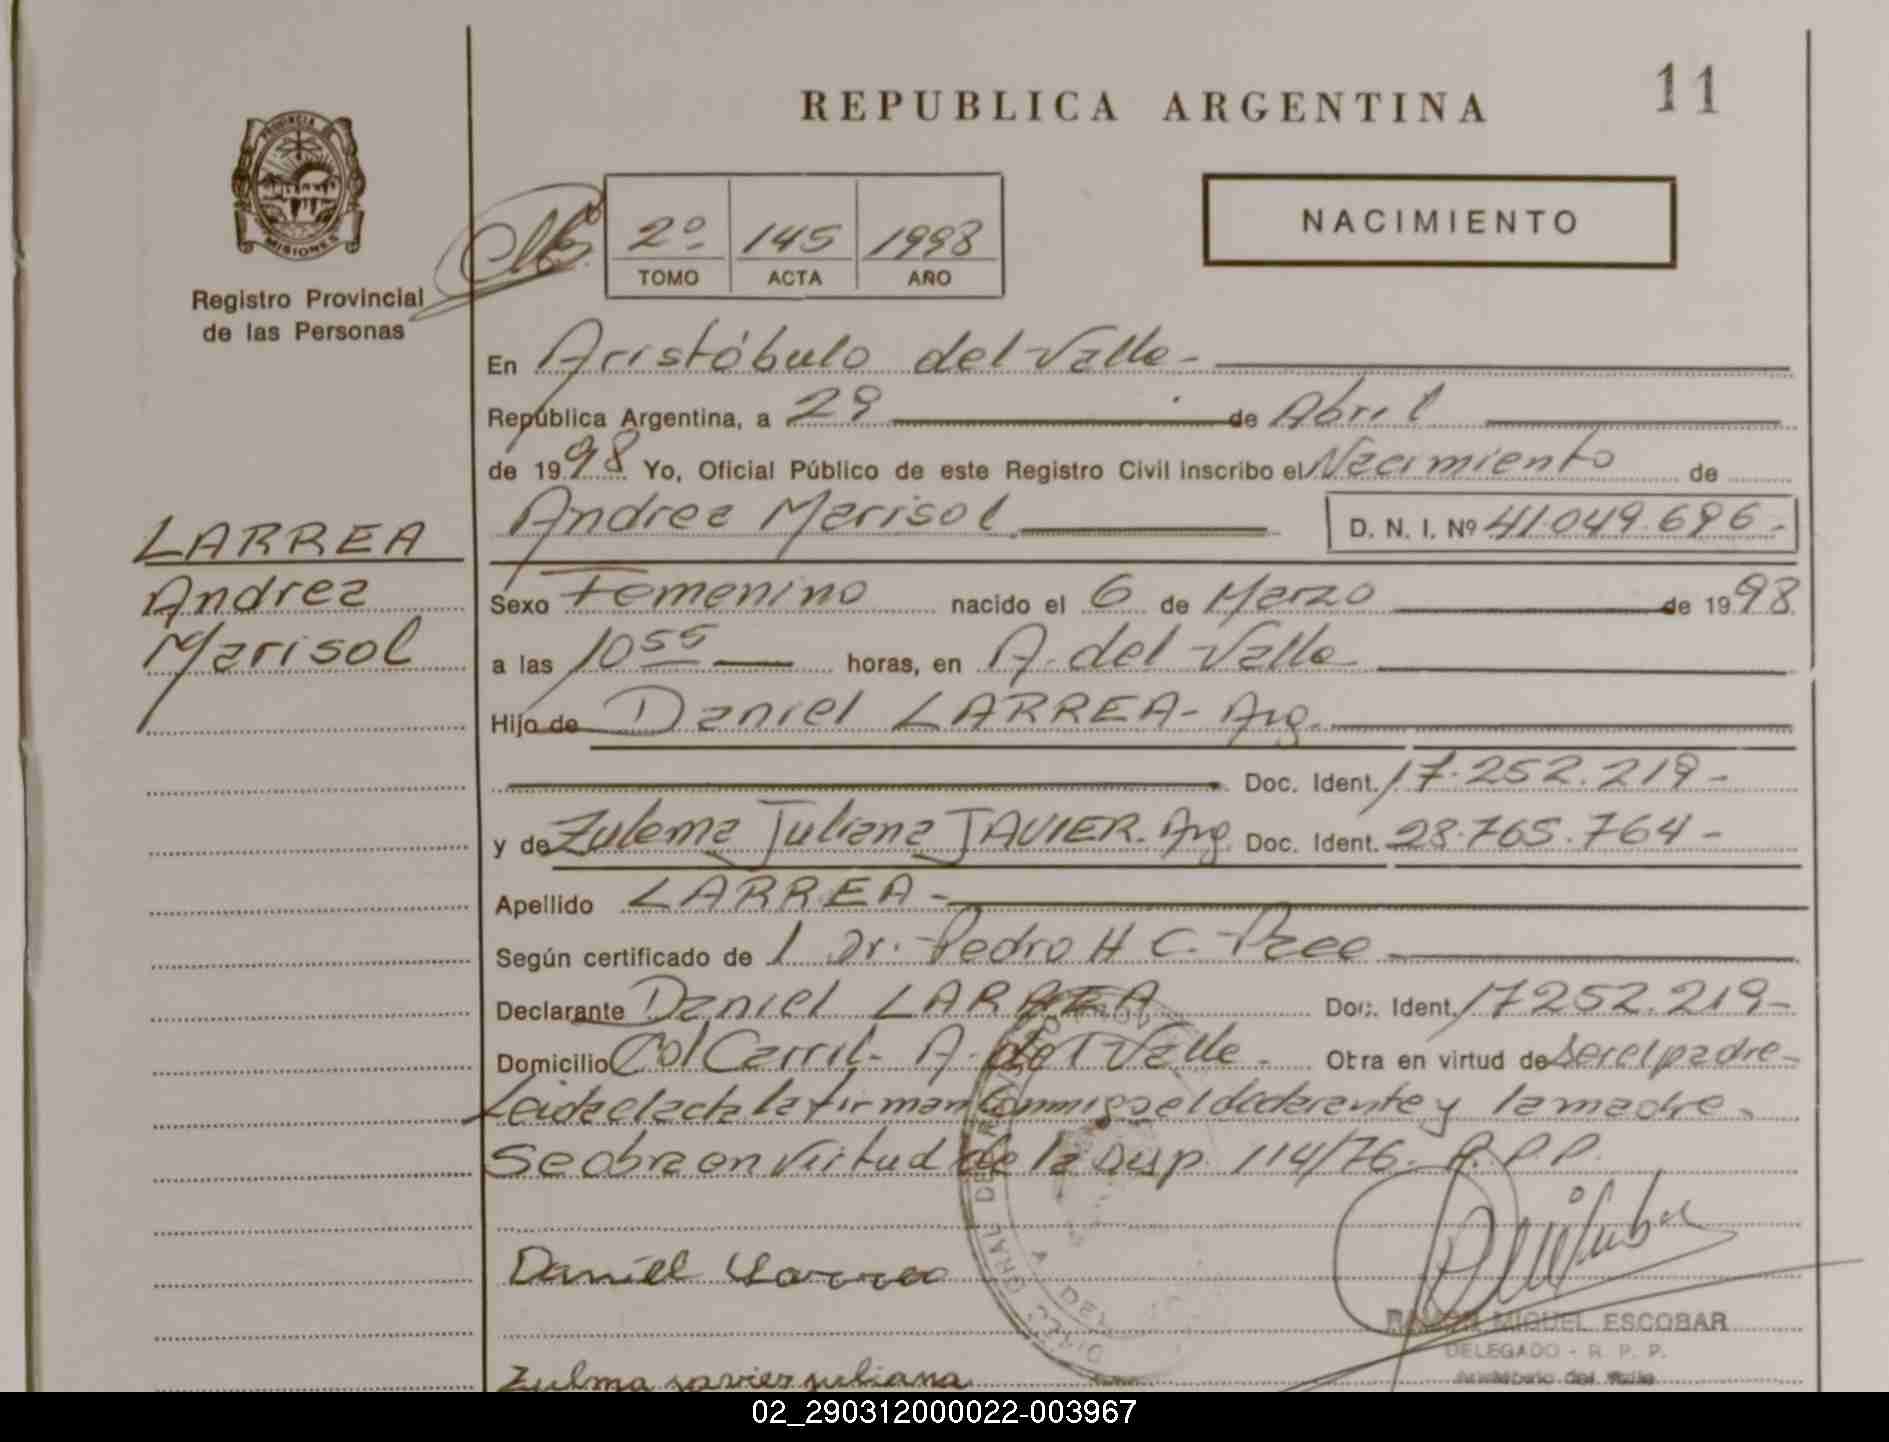 REPUBLICA ARGENTINA
11
PROVINCIA DE
MISIONES
Registro Provincial
de las Personas
2º 145 1998
TOMO ACTA AÑO
NACIMIENTO
En Aristóbulo del Valle -
República Argentina, a 29 de Abril
de 1998 Yo, Oficial Público de este Registro Civil inscribo el Nacimiento de
Andrea Marisol D. N. I. Nº 41.049.696-
LARREA
Andrea
Marisol
Sexo Femenino nacido el 6 de Marzo de 1998
a las 10 55 horas, en A. del Valle
Hijo de Daniel LARREA - Arg.
Doc. Ident. 17.252.219-
y de Zulema Juliana JAVIER. Arg. Doc. Ident. 28.765.764-
Apellido LARREA -
Según certificado de 1 Dr. Pedro H C.
Declarante Daniel LARREA Doc. Ident. 17252.219-
Domicilio Col Carril - A. del Valle - Otra en virtud de ser el padre-
Leida el acta la firman conmigo el declarante y la madre.
Se obra en virtud de la Disp. 114/76. R.P.P.
Daniel Larrea
RAMON MIGUEL ESCOBAR
DELEGADO - R. P. P.
Aristóbulo del Valle
Zulma javier juliana
02_290312000022-003967